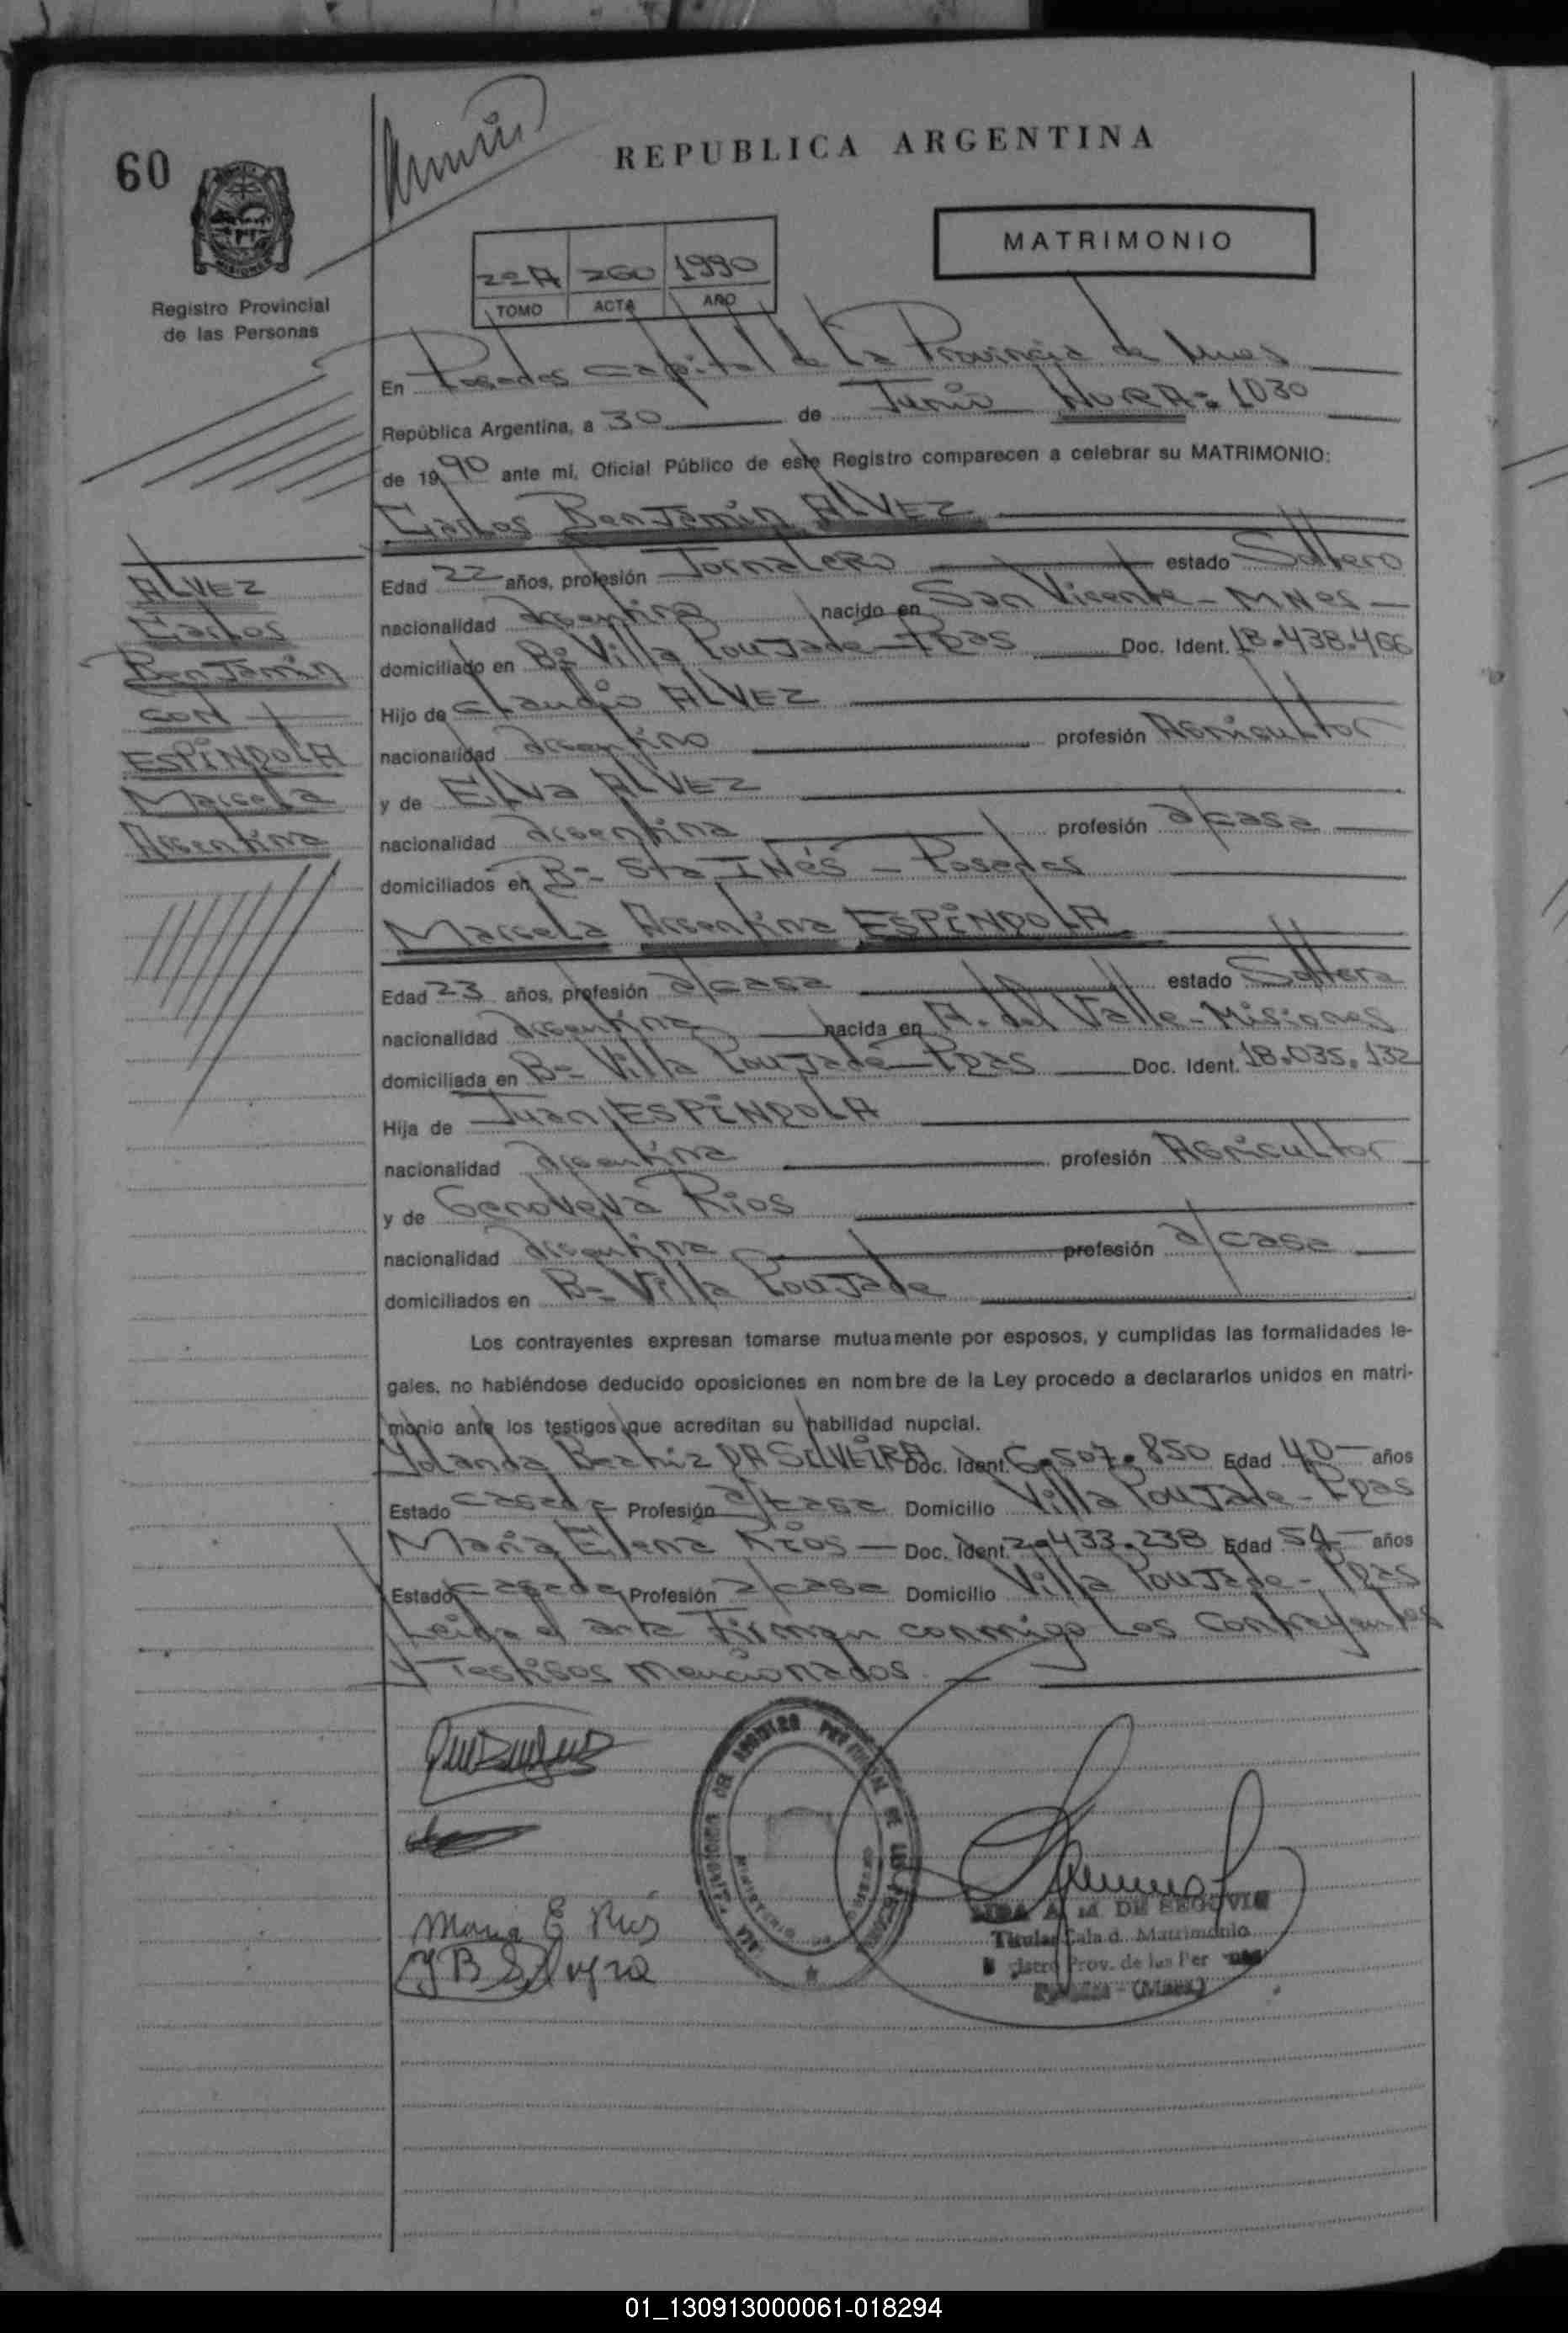 60
REPUBLICA ARGENTINA
MATRIMONIO
2º A 260 1990
TOMO ACTA AÑO
MISIONES
Registro Provincial
de las Personas
En Posadas Capital de La Provincia de Mnes
República Argentina, a 30 de Junio HORA: 1030
de 1990 ante mi, Oficial Público de este Registro comparecen a celebrar su MATRIMONIO:
Carlos Benjamin ALVEZ
Edad 22 años, profesión Jornalero estado Soltero
nacionalidad argentina nacido en San Vicente - MNes -
domiciliado en Bº Villa Poujade - Ppas Doc. Ident. 18.438.466
Hijo de Claudio ALVEZ
nacionalidad argentino profesión Agricultor
y de Elva ALVEZ
nacionalidad argentina profesión a/casa
domiciliados en Bº Sta INés - Posadas
Marcela Argentina ESPINDOLA
Edad 23 años, profesión a/casa estado Soltera
nacionalidad argentina nacida en A. del Valle - Misiones
domiciliada en Bº Villa Poujade - Ppas Doc. Ident. 18.035.132
Hija de Juan ESPINDOLA
nacionalidad argentina profesión Agricultor
y de Genoveva Rios
nacionalidad argentina profesión a/casa
domiciliados en Bº Villa Poujade
Los contrayentes expresan tomarse mutuamente por esposos, y cumplidas las formalidades le-
gales, no habiéndose deducido oposiciones en nombre de la Ley procedo a declararlos unidos en matri-
monio ante los testigos que acreditan su habilidad nupcial.
Yolanda Beatriz DA SILVEIRA Doc. Ident. 6.507.850 Edad 40 - años
Estado casada Profesión a/casa Domicilio Villa Poujade - Ppas
Maria Elena Rios - Doc. Ident. 2.433.238 Edad 54 - años
Estado casada Profesión a/casa Domicilio Villa Poujade - Ppas
Leida el acta Firman conmigo Los Contrayentes
y Testigos mencionados.
ALVEZ
Carlos
Benjamin
CON
ESPINDOLA
Marcela
Argentina
Maria E Rios
Y B Silveyra
A. M. DE SEGOVIA
Titular Sala d. Matrimonio
Prov. de las Per
(Mnes)
01_130913000061-018294